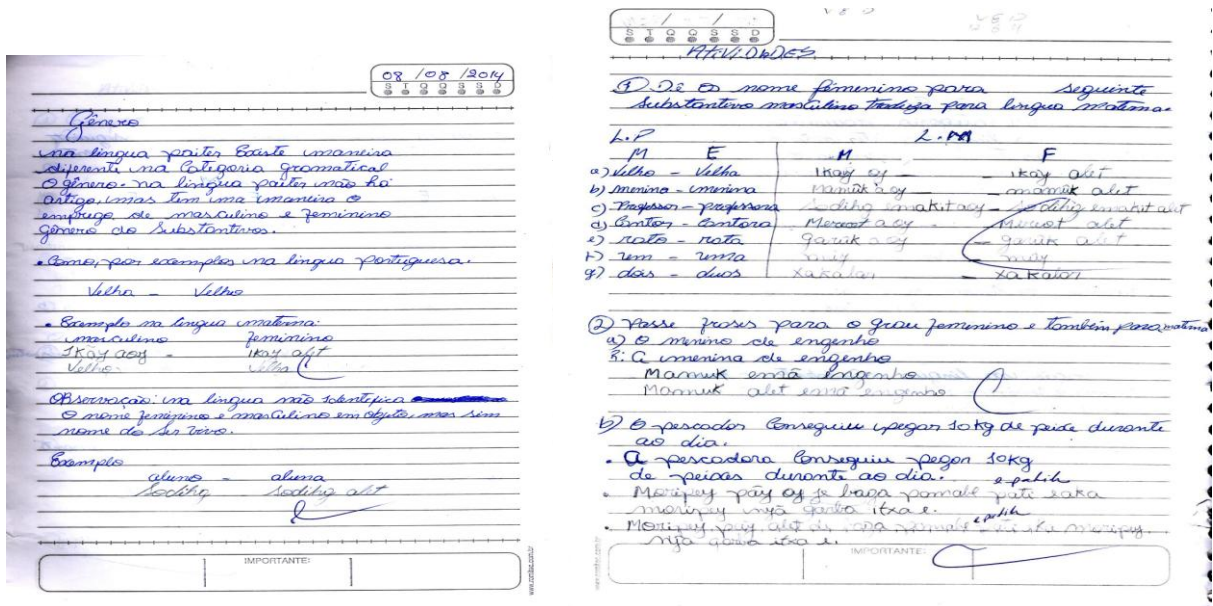 08 /08 /2014
S T Q Q S S D
Gênero
na língua paiter Existe maneira
diferente na Categoria gramatical
O gênero. na língua paiter não há
artigo, mas tem uma maneira o
emprego de masculino e feminino
gênero do Substantivos.
• Como, por exemplos na língua portuguesa.
Velha - Velho
• Exemplo na língua materna:
masculino feminino
Ikãy aoy - Ikay alet
Velho - Velha
Observação: na língua não identifica
O nome feminino e masculino em objeto, mas sim
nome do Ser vivo.
Exemplo
aluno - aluna
Sodihg - Sodihg alet
IMPORTANTE:
S T Q Q S S D
ATIVIDADES
① Dê O nome feminino para seguinte
Substantivo masculino traduza para língua materna.
L.P L.M
M F M F
a) Velho - Velha Ikay oy - Ikay alet
b) menino - menina mamuk aoy - mamuk alet
c) Professor - professora Sodihg emakit aoy - Sodihg emakit alet
d) Cantor - Cantora Merewot aoy - Merewot alet
e) rato - rata garuk aoy - garuk alet
f) um - uma muy - muy
g) dois - duas xakalar - xakalar
② Passe frases para o grau femenino e também para materna
a) O menino de engenho
R: A menina de engenho
Mamuk emã engenho
Mamuk alet emã engenho
b) O pescador Conseguiu pegar 10kg de peixe durante
ao dia.
• A pescadora Conseguiu pegar 10kg
de peixes durante ao dia.
• Moripey pãy oy je baga pamabe pate eaka
e patih
moripey mya garba itxa e.
• Moripey pãy alet
e patih
moripey
mya garba itxa e.
IMPORTANTE: